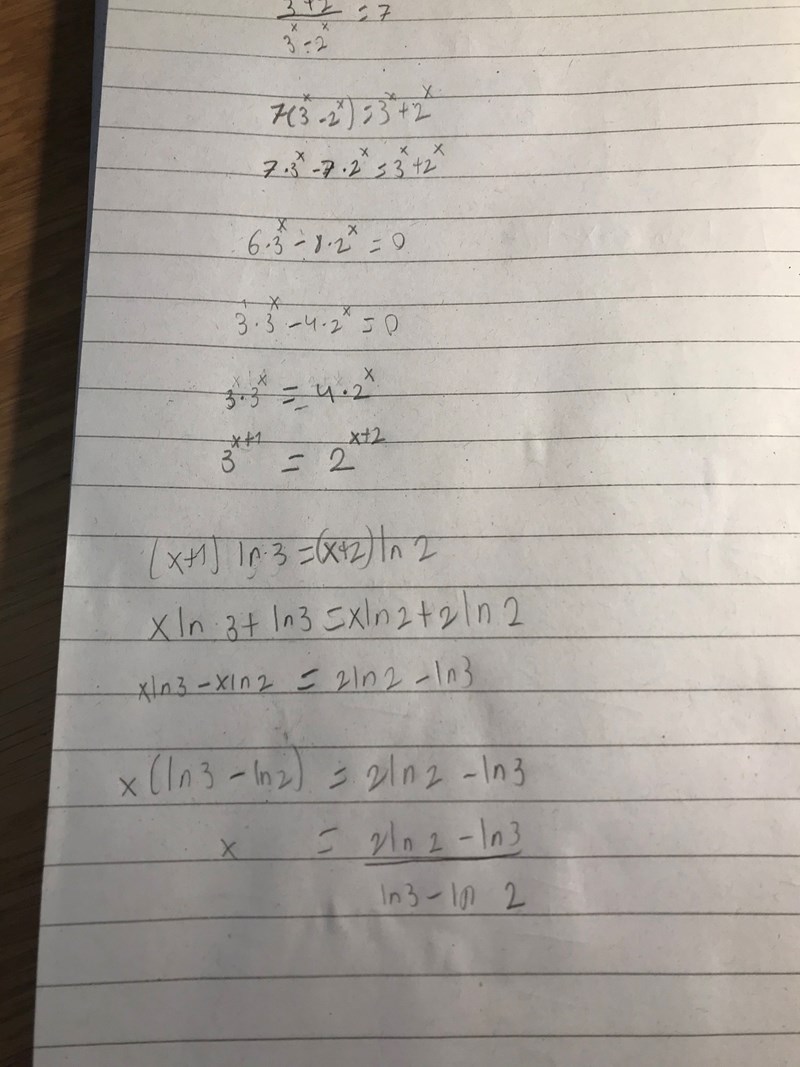 3^x+2^x / 3^x-2^x = 7
7(3^x-2^x)=3^x+2^x
7·3^x-7·2^x=3^x+2^x
6·3^x-8·2^x=0
3·3^x-4·2^x=0
3·3^x=4·2^x
3^(x+1)=2^(x+2)
(x+1) ln 3=(x+2) ln 2
x ln 3+ln 3=x ln 2+2 ln 2
x ln 3-x ln 2=2 ln 2-ln 3
x(ln 3-ln 2)=2 ln 2-ln 3
x = 2 ln 2-ln 3 / ln 3-ln 2